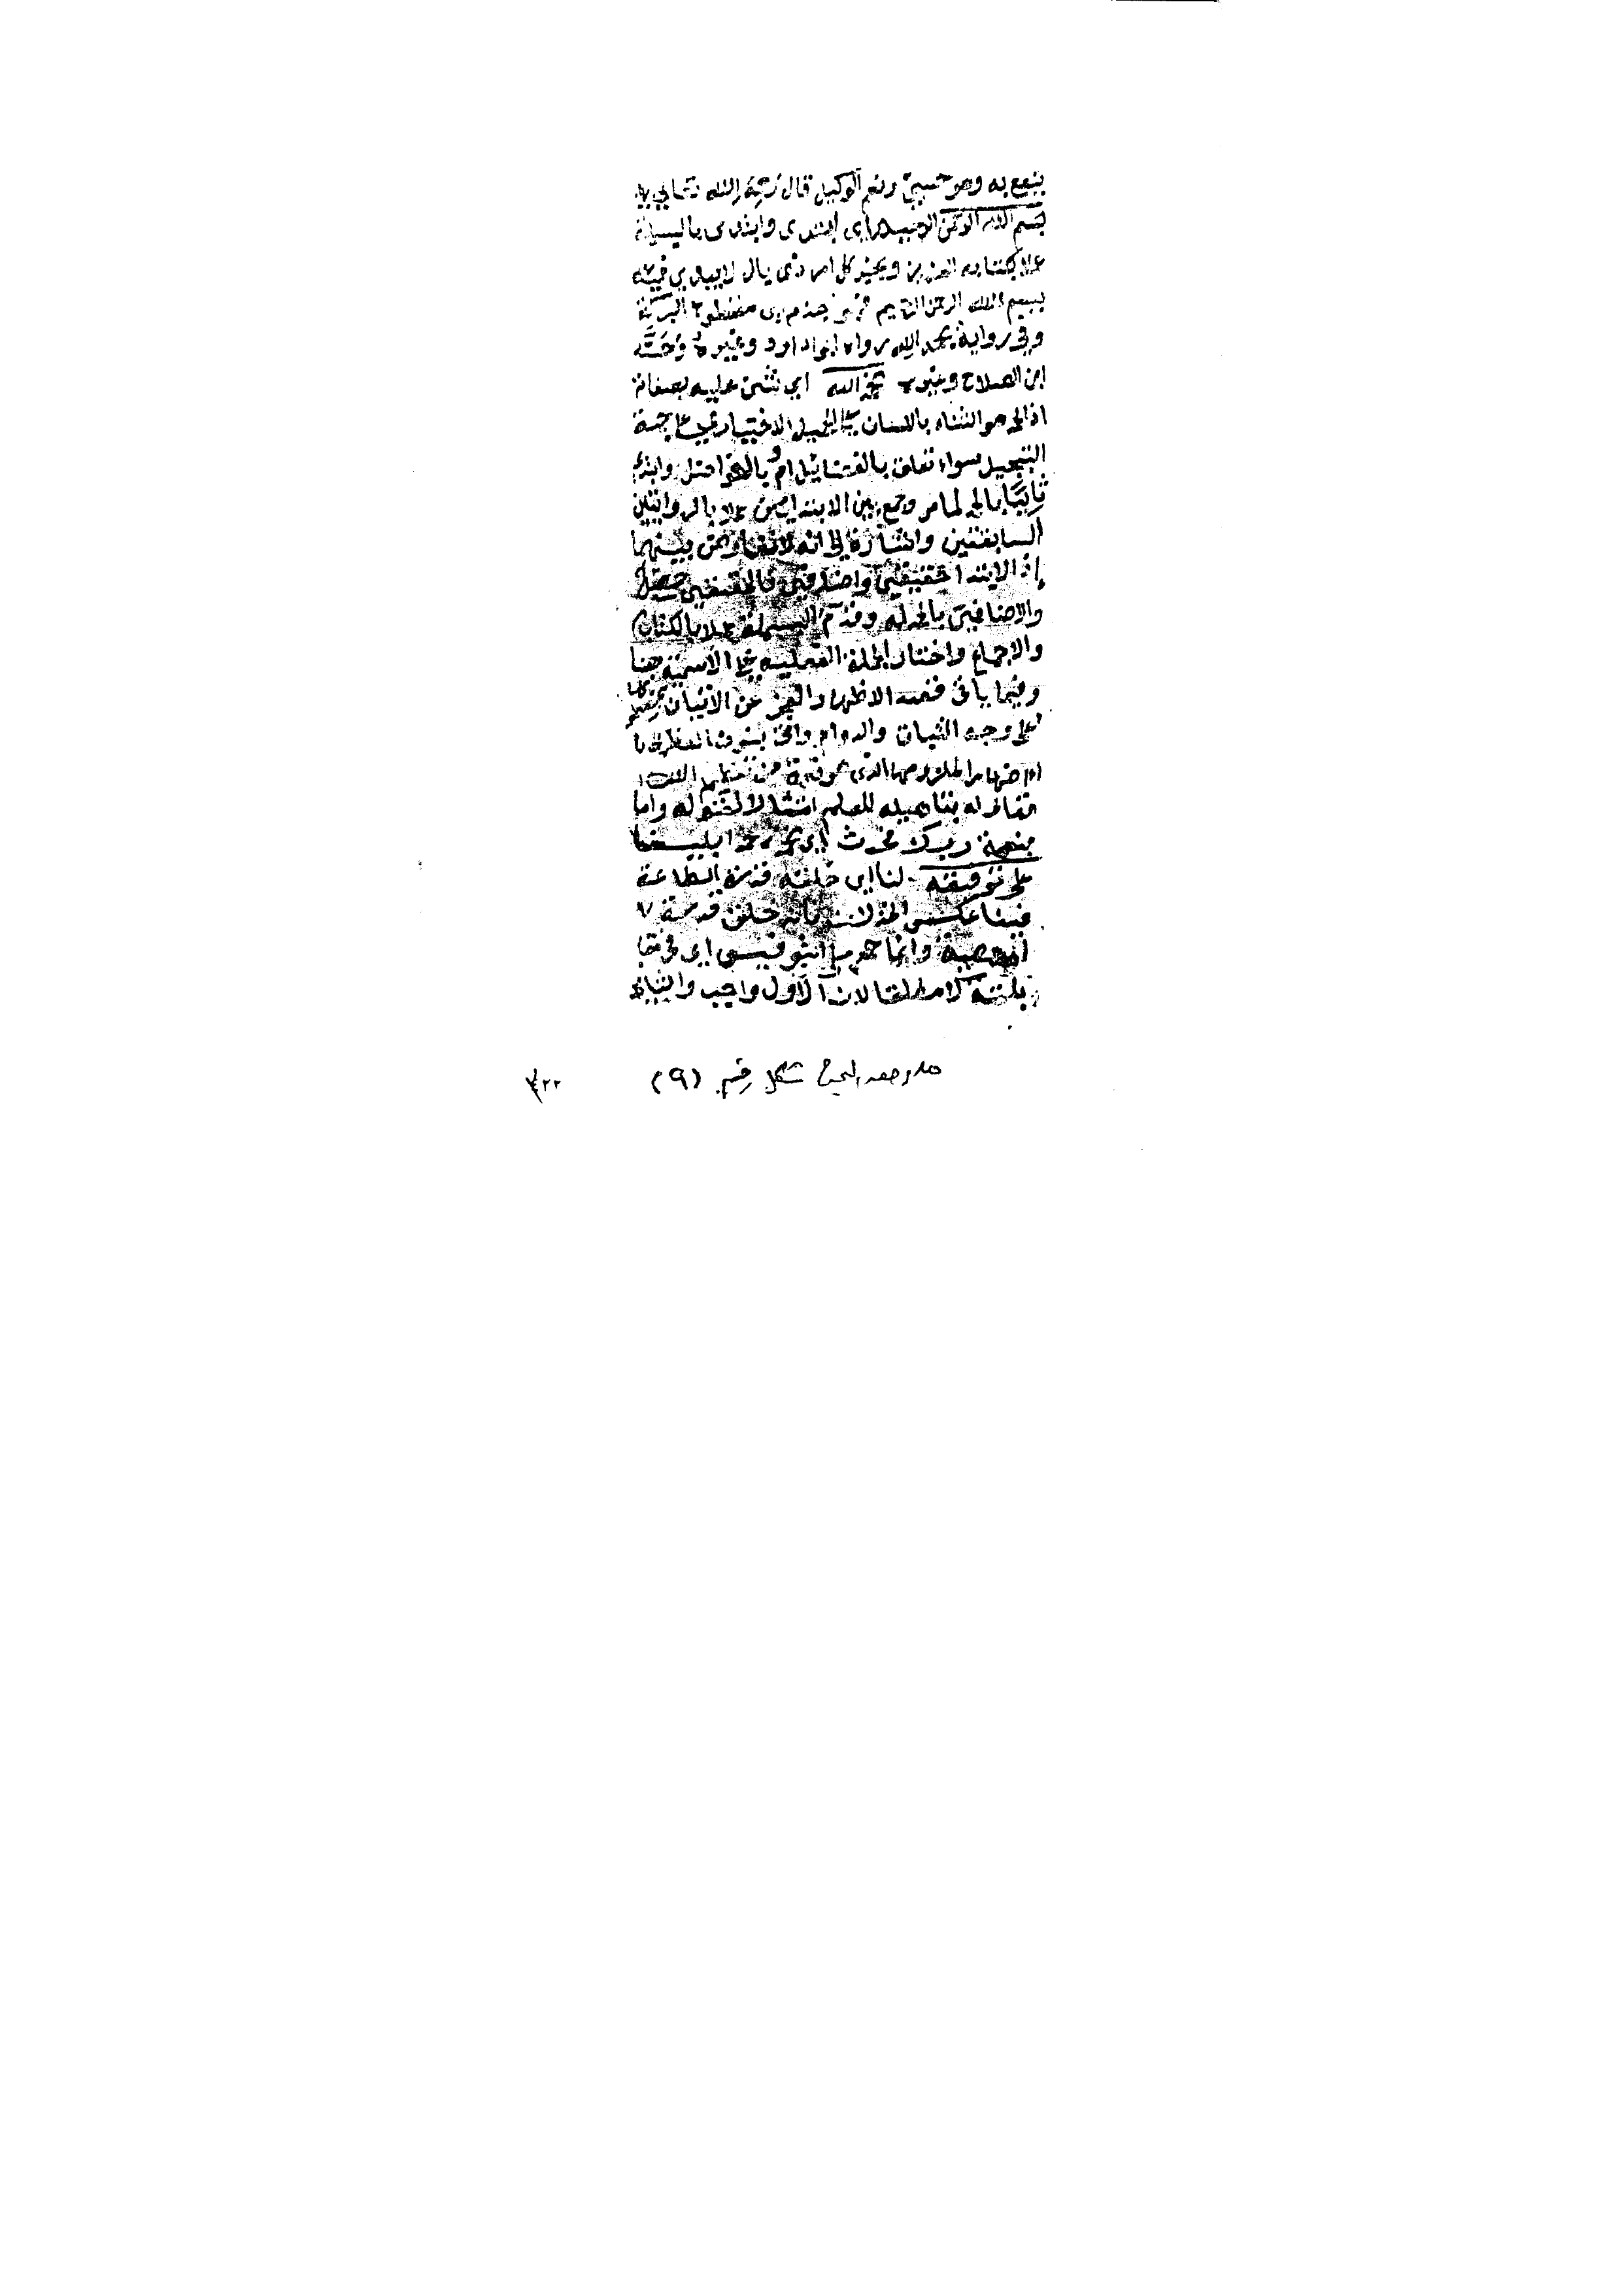 ينفع به وهو حسبي ونعم الوكيل قال رحمه الله تعالى
بسم الله الرحمن الرحيم اي ابتدي وابتدى بالبسملة
عملا بكتابه العزيز وبخبر كل امر ذي بال لا يبدى فيه
ببسم الله الرحمن الرحيم فهو اجذم اى مقطوع البركة
وفي رواية بحمد الله رواه ابو داود وغيره وحسنه
ابن الصلاح وغيره نحمد الله اي نثنى عليه بصفاته
اذ الحمد هو الثناء باللسان على الجميل الاختياري على جهة
التبجيل سواء تعلق بالفضائل ام بالفواضل وابتدى
ثانيا بالحمد لما مر وجمع بين الابتدائين عملا بالروايتين
السابقتين واشارة الى انه لا تعارض بينهما
إذ الابتدا حقيقي واضافي فالحقيقي حصل
والاضافي بالحمدله وقدم البسملة عملا بالكتاب
والاجماع واختار الجملة الفعليه على الاسمية هنا
وفيما ياتى قصد الاظهار العجز عن الاتيان
على وجه الثبات والدوام واتى بنون العظمة
اظهارا لملزومها الذى هو نعمة من تعظيم الله
تعالى له بتاهيله للعلم امتثالا لقوله واما
بنعمة ربك فحدث اي نحمده حمدا بليغا
على توفيقه لنا اى خلقه قدرة الطاعة
فينا عكس الخذلان فانه خلق قدرة
المعصية وانما حمد على التوفيق اى في مقا
بلته لا مطلقا لان الاول واجب والثاني
شكل رقم (٩)